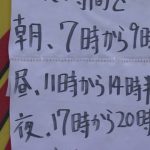 時間で
朝、7時から9時
昼、11時から14時
夜、17時から20時